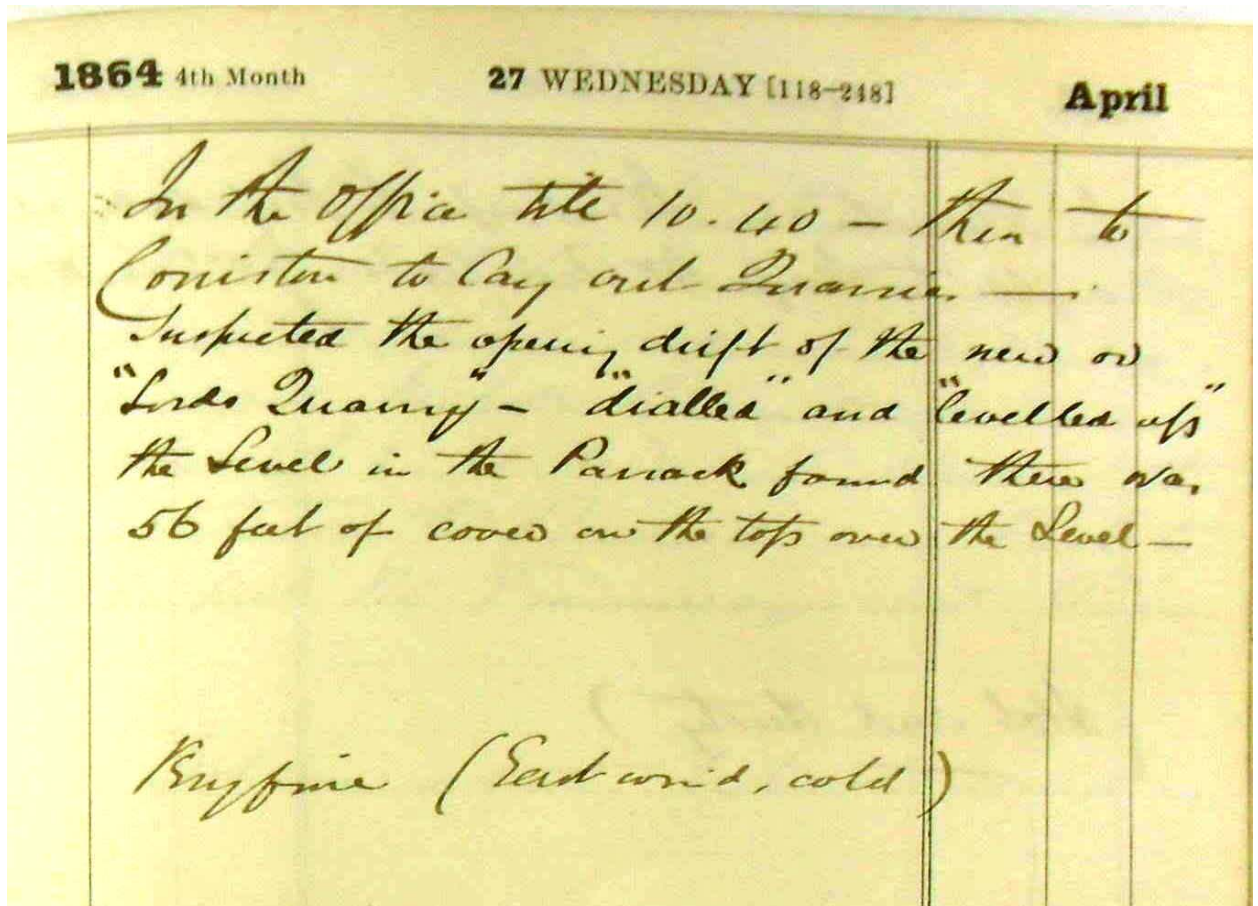 1864 4th Month 27 WEDNESDAY [118-248] April
In the Office till 10.40 — then to
Coniston to lay out Quarries —
Inspected the opening drift of the new or
"Lords Quarry" — "dialled" and "levelled up"
the Level in the Parrock found there was
56 feet of cover on the top over the Level —
Very fine (East wind, cold)